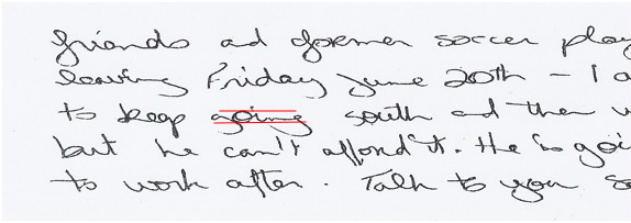 friends and former soccer play
leaving Friday June 20th – I a
to keep going south and then w
but he can't afford it. He is goi
to work after. Talk to you so